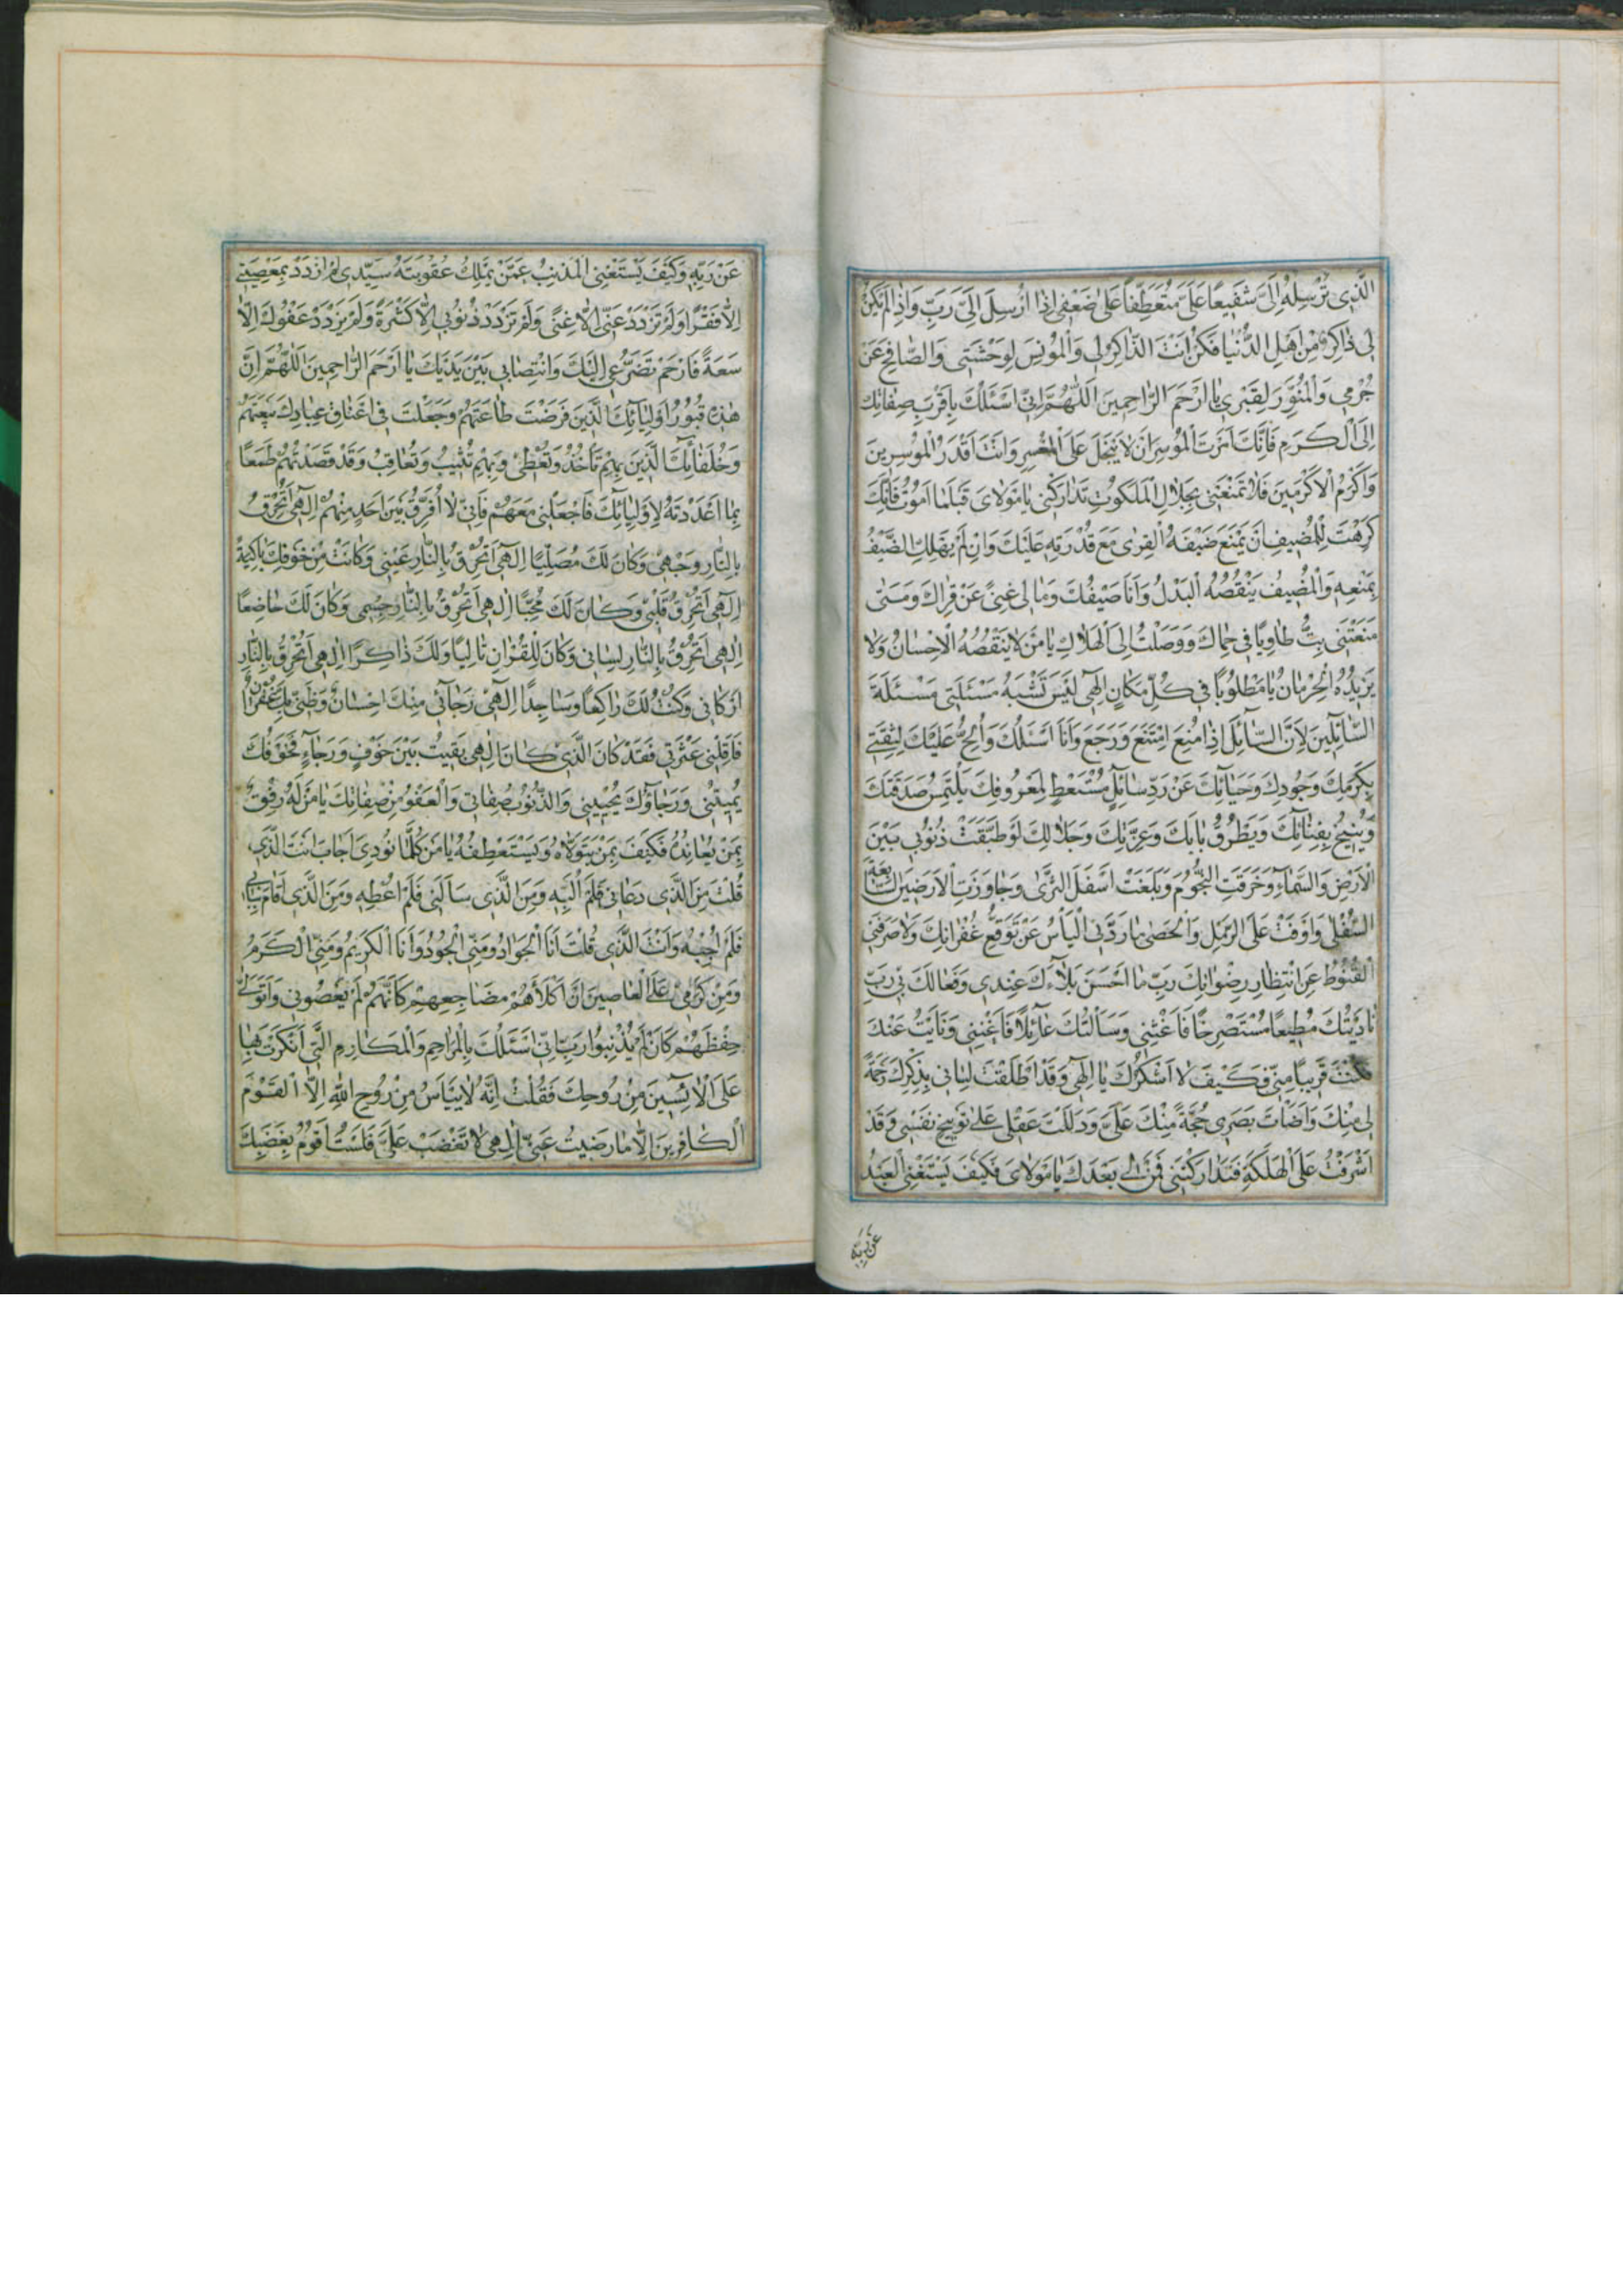 الَّذِي تُرْسِلُهُ اِلَيَّ شَفِيعًا عَلَيَّ مُتَعَطِّفًا عَلىٰ ضَعْفِي اِذَا اُرْسِلَ اِلَيَّ رَبِّ وَاِذَا لَمْ يَكُنْ
لِي ذَاكِرٌ مِنْ اَهْلِ الدُّنْيَا فَكُنْ اَنْتَ الذَّاكِرَ لِي وَالْمُونِسَ لِوَحْشَتِي وَالصَّافِحَ عَنْ
جُرْمِي وَالْمُنَوِّرَ لِقَبْرِي يَا اَرْحَمَ الرَّاحِمِينَ اَللّٰهُمَّ اِنِّي اَسْئَلُكَ بِاَقْرَبِ صِفَاتِكَ
اِلَى الْكَرَمِ فَاِنَّكَ اَمَرْتَ الْمُوسِرَ اَنْ لَا يَبْخَلَ عَلَى الْمُعْسِرِ وَاَنْتَ اَقْدَرُ الْمُوسِرِينَ
وَاَكْرَمُ الْاَكْرَمِينَ فَلَا تَمْنَعْنِي بِجَلَالِ الْمَلَكُوتِ تَدَارَكْنِي يَا مَوْلَايَ قَبْلَمَا اَمُوتُ فَاِنَّكَ
كَرِهْتَ لِلْمُضِيفِ اَنْ يَمْنَعَ ضَيْفَهُ الْقِرىٰ مَعَ قُدْرَتِهِ عَلَيْكَ وَاِنْ لَمْ يَهْلِكِ الضَّيْفُ
بِمَنْعِهِ وَالْمُضِيفُ يَنْقُصُهُ الْبَذْلُ وَاَنَا ضَيْفُكَ وَمَا لِي غِنىً عَنْ قِرَاكَ وَمَتىٰ
مَنَعْتَنِي بِتُّ طَاوِيًا فِي حِمَاكَ وَوَصَلْتُ اِلَى الْهَلَاكِ يَا مَنْ لَا يَنْقُصُهُ الْاِحْسَانُ وَلَا
يَزِيدُهُ الْحِرْمَانُ يَا مَطْلُوبًا فِي كُلِّ مَكَانٍ اِلٰهِي لَيْسَ تَشْبَهُ مَسْئَلَتِي مَسْئَلَةَ
السَّائِلِينَ لِاَنَّ السَّائِلَ اِذَا مُنِعَ امْتَنَعَ وَرَجَعَ وَاَنَا اَسْئَلُكَ وَاُلِحُّ عَلَيْكَ لِثِقَتِي
بِكَرَمِكَ وَجُودِكَ وَحَيَائِكَ عَنْ رَدِّ سَائِلٍ مُسْتَعْطٍ لِمَعْرُوفِكَ يَلْتَمِسُ صَدَقَتَكَ
وَيُنِيخُ بِفِنَائِكَ وَيَطْرُقُ بَابَكَ وَعِزَّتِكَ وَجَلَالِكَ لَوْ طَبَّقَتْ ذُنُوبِي بَيْنَ
الْاَرْضِ وَالسَّمَاءِ وَخَرَقَتِ النُّجُومَ وَبَلَغَتْ اَسْفَلَ الثَّرىٰ وَجَاوَزَتِ الْاَرَضِينَ السَّابِعَةَ
السُّفْلىٰ وَاَوْفَتْ عَلَى الرَّمْلِ وَالْحَصىٰ مَا رَدَّنِي الْيَأْسُ عَنْ تَوَقُّعِ غُفْرَانِكَ وَلَا صَرَفَنِي
الْقُنُوطُ عَنِ انْتِظَارِ رِضْوَانِكَ رَبِّ مَا اَحْسَنَ بَلَاءَكَ عِنْدِي وَفَعَالَكَ بِي رَبِّ
نَادَيْتُكَ مُطِيعًا مُسْتَصْرِخًا فَاَغِثْنِي وَسَاَلْتُكَ عَائِلًا فَاَغْنِنِي وَنَاَيْتُ عَنْكَ
فَكُنْتَ قَرِيبًا مِنِّي فَكَيْفَ لَا اَشْكُرُكَ يَا اِلٰهِي وَقَدْ اَطْلَقْتَ لِسَانِي بِذِكْرِكَ رَحْمَةً
لِي مِنْكَ وَاَضَأْتَ بَصَرِي حُجَّةً مِنْكَ عَلَيَّ وَدَلَلْتَ عَقْلِي عَلىٰ تَوْبِيخِ نَفْسِي وَقَدْ
اَشْرَفْتُ عَلَى الْهَلَكَةِ فَتَدَارَكْنِي فَمَنْ لِي بَعْدَكَ يَا مَوْلَايَ فَكَيْفَ يَسْتَغْنِي الْعَبْدُ
عَنْ رَبِّهِ
عَنْ رَبِّهِ وَكَيْفَ يَسْتَغْنِي الْمُذْنِبُ عَمَّنْ يَمْلِكُ عُقُوبَتَهُ سَيِّدِي لَمْ اَزْدَدْ بِمَعْصِيَتِي
اِلَّا فَقْرًا وَلَمْ تَزْدَدْ عَنِّي اِلَّا غِنىً وَلَمْ تَزْدَدْ ذُنُوبِي اِلَّا كَثْرَةً وَلَمْ يَزْدَدْ عَفْوُكَ اِلَّا
سَعَةً فَارْحَمْ تَضَرُّعِي اِلَيْكَ وَانْتِصَابِي بَيْنَ يَدَيْكَ يَا اَرْحَمَ الرَّاحِمِينَ اَللّٰهُمَّ اِنَّ
هٰذِهِ قُبُورُ اَوْلِيَائِكَ الَّذِينَ فَرَضْتَ طَاعَتَهُمْ وَجَعَلْتَ فِي اَعْنَاقِ عِبَادِكَ بَيْعَتَهُمْ
وَخُلَفَائِكَ الَّذِينَ بِهِمْ تَأْخُذُ وَتُعْطِي وَبِهِمْ تُثِيبُ وَتُعَاقِبُ وَقَدْ قَصَدْتُهُمْ طَمَعًا
بِمَا اَعْدَدْتَهُ لِاَوْلِيَائِكَ فَاجْعَلْنِي مَعَهُمْ فَاِنِّي لَا اُفَرِّقُ بَيْنَ اَحَدٍ مِنْهُمْ اِلٰهِي اَتُحْرِقُ
بِالنَّارِ وَجْهِي وَكَانَ لَكَ مُصَلِّيًا اِلٰهِي اَتُحْرِقُ بِالنَّارِ عَيْنِي وَكَانَتْ مِنْ خَوْفِكَ بَاكِيَةً
اِلٰهِي اَتُحْرِقُ قَلْبِي وَكَانَ لَكَ مُحِبًّا اِلٰهِي اَتُحْرِقُ بِالنَّارِ جِسْمِي وَكَانَ لَكَ خَاضِعًا
اِلٰهِي اَتُحْرِقُ بِالنَّارِ لِسَانِي وَكَانَ لِلْقُرْاٰنِ تَالِيًا وَلَكَ ذَاكِرًا اِلٰهِي اَتُحْرِقُ بِالنَّارِ
اَرْكَانِي وَكُنْتُ لَكَ رَاكِعًا وَسَاجِدًا اِلٰهِي رَجَائِي مِنْكَ اِحْسَانٌ وَظَنِّي بِكَ غُفْرَانٌ
فَاَقِلْنِي عَثْرَتِي فَقَدْ كَانَ الَّذِي كَانَ اِلٰهِي بَقِيتُ بَيْنَ خَوْفٍ وَرَجَاءٍ فَخَوْفُكَ
يُمِيتُنِي وَرَجَاؤُكَ يُحْيِينِي وَالذُّنُوبُ صِفَاتِي وَالْعَفْوُ مِنْ صِفَاتِكَ يَا مَنْ لَهُ رِفْقٌ
بِمَنْ يُعَانِدُهُ فَكَيْفَ بِمَنْ يَتَوَلَّاهُ وَيَسْتَعْطِفُهُ يَا مَنْ كُلَّمَا نُودِيَ اَجَابَ اَنْتَ الَّذِي
قُلْتَ مَنِ الَّذِي دَعَانِي فَلَمْ اُلَبِّهِ وَمَنِ الَّذِي سَاَلَنِي فَلَمْ اُعْطِهِ وَمَنِ الَّذِي اَقَامَ بِبَابِي
فَلَمْ اُجِبْهُ وَاَنْتَ الَّذِي قُلْتَ اَنَا الْجَوَادُ وَمِنِّي الْجُودُ وَاَنَا الْكَرِيمُ وَمِنِّي الْكَرَمُ
وَمِنْ كَرَمِي عَلَى الْعَاصِينَ اَنْ اَكْلَأَهُمْ مَضَاجِعِهِمْ كَاَنَّهُمْ لَمْ يَعْصُونِي وَاَتَوَلّىٰ
حِفْظَهُمْ كَاَنْ لَمْ يُذْنِبُوا رَبِّ اِنِّي اَسْئَلُكَ بِالْمَرَاحِمِ وَالْمَكَارِمِ الَّتِي اَنْكَرْتَ بِهَا
عَلَى الْاٰئِسِينَ مِنْ رَوْحِكَ فَقُلْتَ اِنَّهُ لَا يَيْاَسُ مِنْ رَوْحِ اللّٰهِ اِلَّا الْقَوْمُ
الْكَافِرِينَ اِلَّا مَا رَضِيتُ عَنِّي اِلٰهِي لَا تَغْضَبْ عَلَيَّ فَلَسْتُ اَقُومُ بِغَضَبِكَ